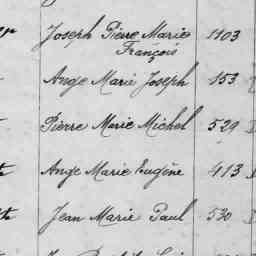 Joseph Pierre Marie 1103
François
Ange Marie Joseph 153
Pierre Marie Michel 529
Ange Marie Eugène 413
Jean Marie Paul 530